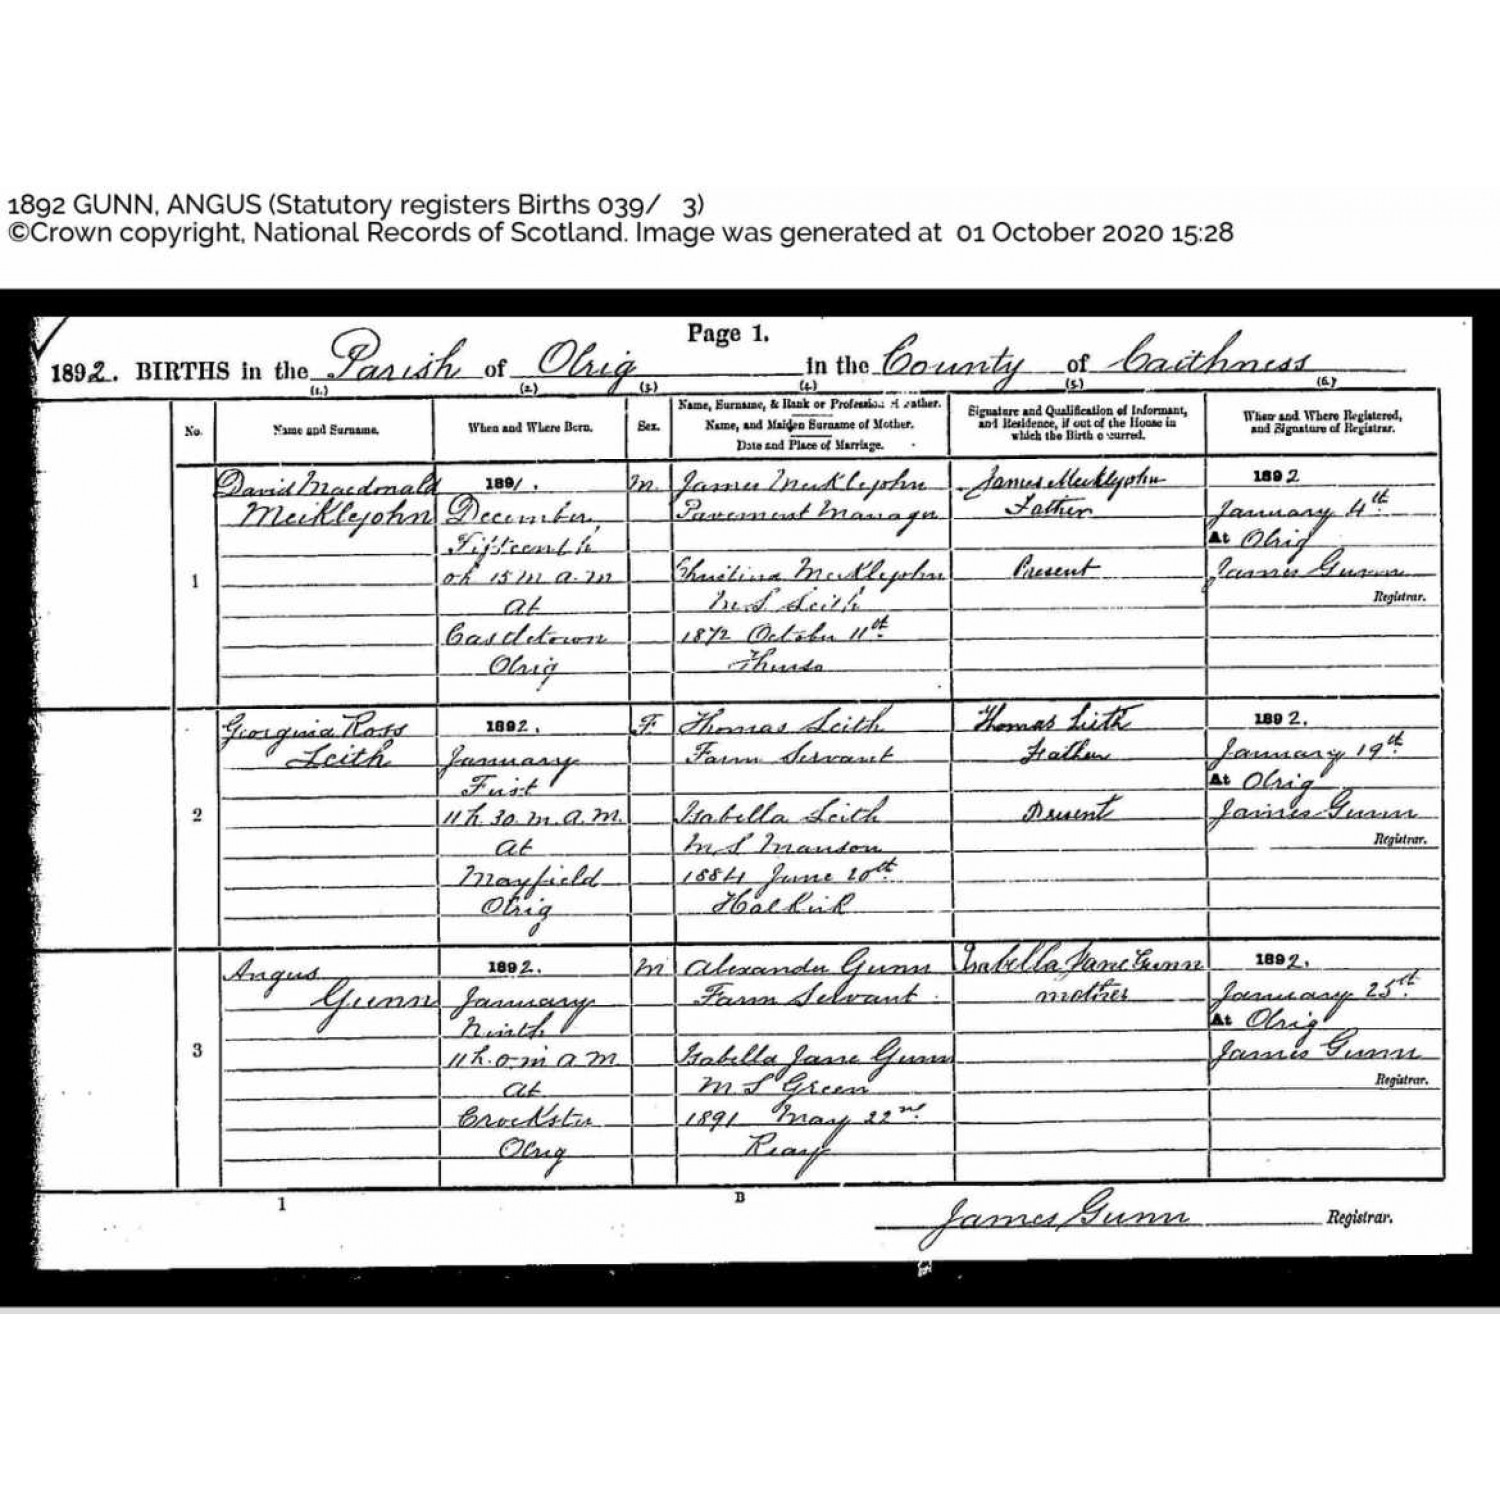 1892 GUNN, ANGUS (Statutory registers Births 039/ 3)
©Crown copyright, National Records of Scotland. Image was generated at 01 October 2020 15:28
Page 1.
1892. BIRTHS in the Parish of Olrig in the County of Caithness
(1.) (2.) (3.) (4.) (5.) (6.)
No.
Name and Surname.
When and Where Born.
Sex.
Name, Surname, & Rank or Profession of Father.
Name, and Maiden Surname of Mother.
Date and Place of Marriage.
Signature and Qualification of Informant,
and Residence, if out of the House in
which the Birth occurred.
When and Where Registered,
and Signature of Registrar.
1
David Macdonald
Meiklejohn
1891.
December
Fifteenth
0h 15 m a.m
At
Castletown
Olrig
M.
James Meiklejohn
Pavement Manager
Christina Meiklejohn
M.S Leith
1872 October 11th
Thurso
James Meiklejohn
Father
Present
1892
January 4th
At Olrig
James Gunn
Registrar.
2
Georgina Ross
Leith
1892.
January
First
11 h. 30. m. a.m.
At
Mayfield
Olrig
F
Thomas Leith
Farm Servant
Isabella Leith
M.S Manson
1884 June 20th
Halkirk
Thomas Leith
Father
Present
1892.
January 19th
At Olrig
James Gunn
Registrar.
3
Angus
Gunn
1892.
January
Ninth
11 h. 0 m a m
At
Olrig
M
Alexander Gunn
Farm Servant
Isabella Jane Gunn
M S Green
1891 May 22nd
Reay
Isabella Jane Gunn
mother
1892.
January
At Olrig
James Gunn
Registrar.
1
B
James Gunn Registrar.